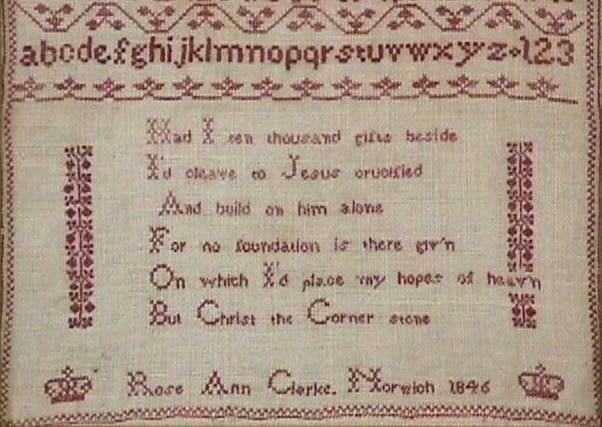 abcdefghijklmnopqrstuvwxyz 123
Had I ten thousand gifts beside
I'd cleave to Jesus crucified
And build on him alone
For no foundation is there giv'n
On which I'd place my hopes of heav'n
But Christ the Corner stone
Rose Ann Clerke. Norwich 1846